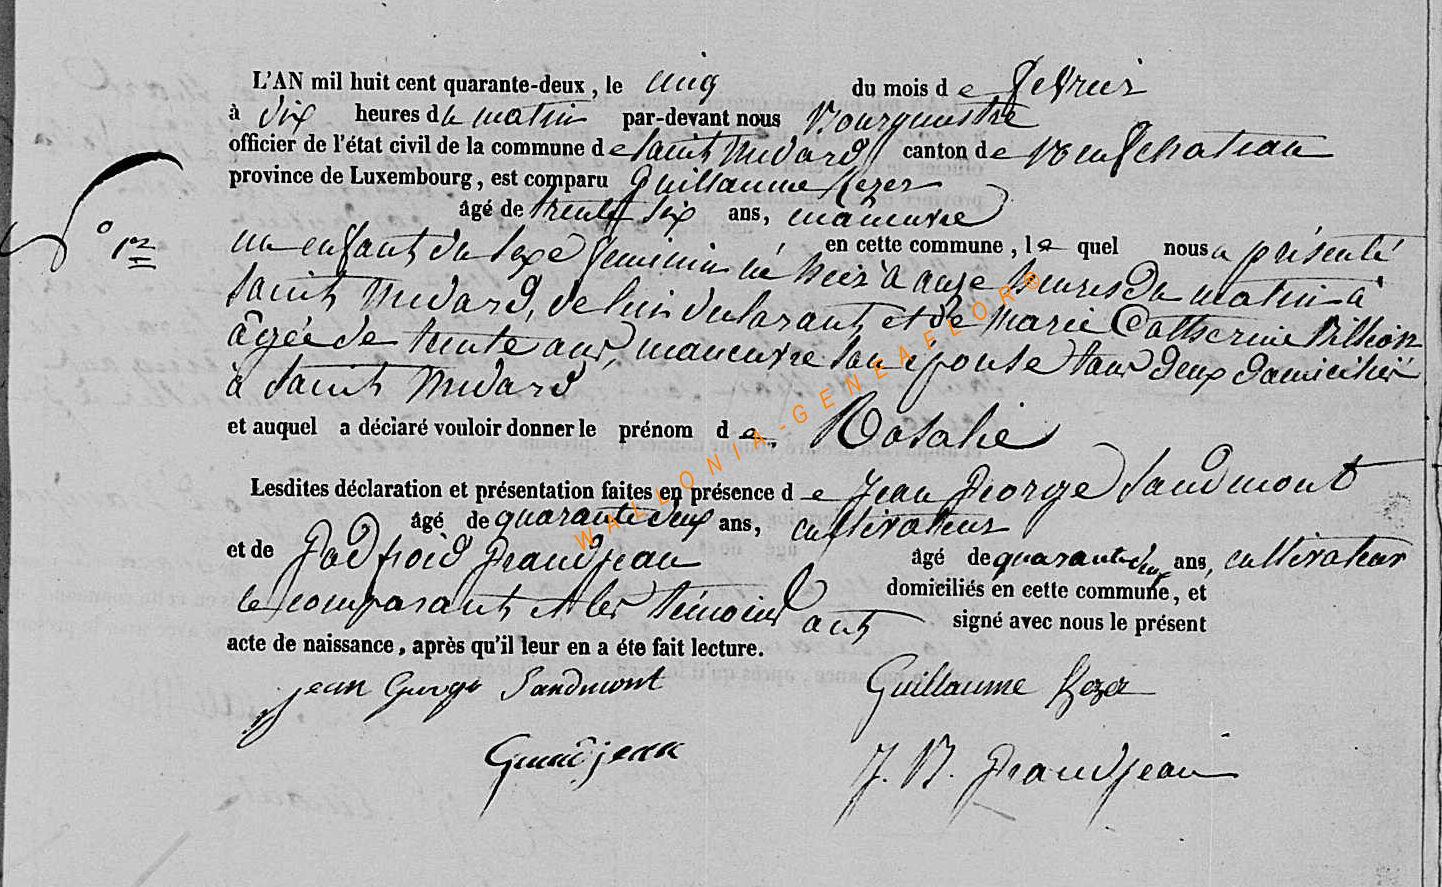 L'AN mil huit cent quarante-deux, le cinq du mois de fevrier
à dix heures du matin par-devant nous Bourgmestre
officier de l'état civil de la commune de Saint Médard canton de Neufchateau
province de Luxembourg, est comparu Guillaume Kezer
âgé de trente six ans, manœuvre
n° 12 en cette commune, le quel nous a présenté
un enfant du sexe feminin né hier à onze heures du matin à
Saint Médard, de lui declarant, et de Marie Catherine
âgée de trente ans, manœuvre son epouse tous deux domiciliés
à Saint Médard
et auquel a déclaré vouloir donner le prénom de Rosalie
Lesdites déclaration et présentation faites en présence de Jean George Sandmont
âgé de quarante deux ans, cultivateur
et de Godfroid Grandjean âgé de quarante deux ans, cultivateur
domiciliés en cette commune, et
le comparant et les témoins ont signé avec nous le présent
acte de naissance, après qu'il leur en a été fait lecture.
jean George Sandmont Guillaume Kezer
Grandjean J. B. Grandjean
WALLONIA-GENEAFLOR®